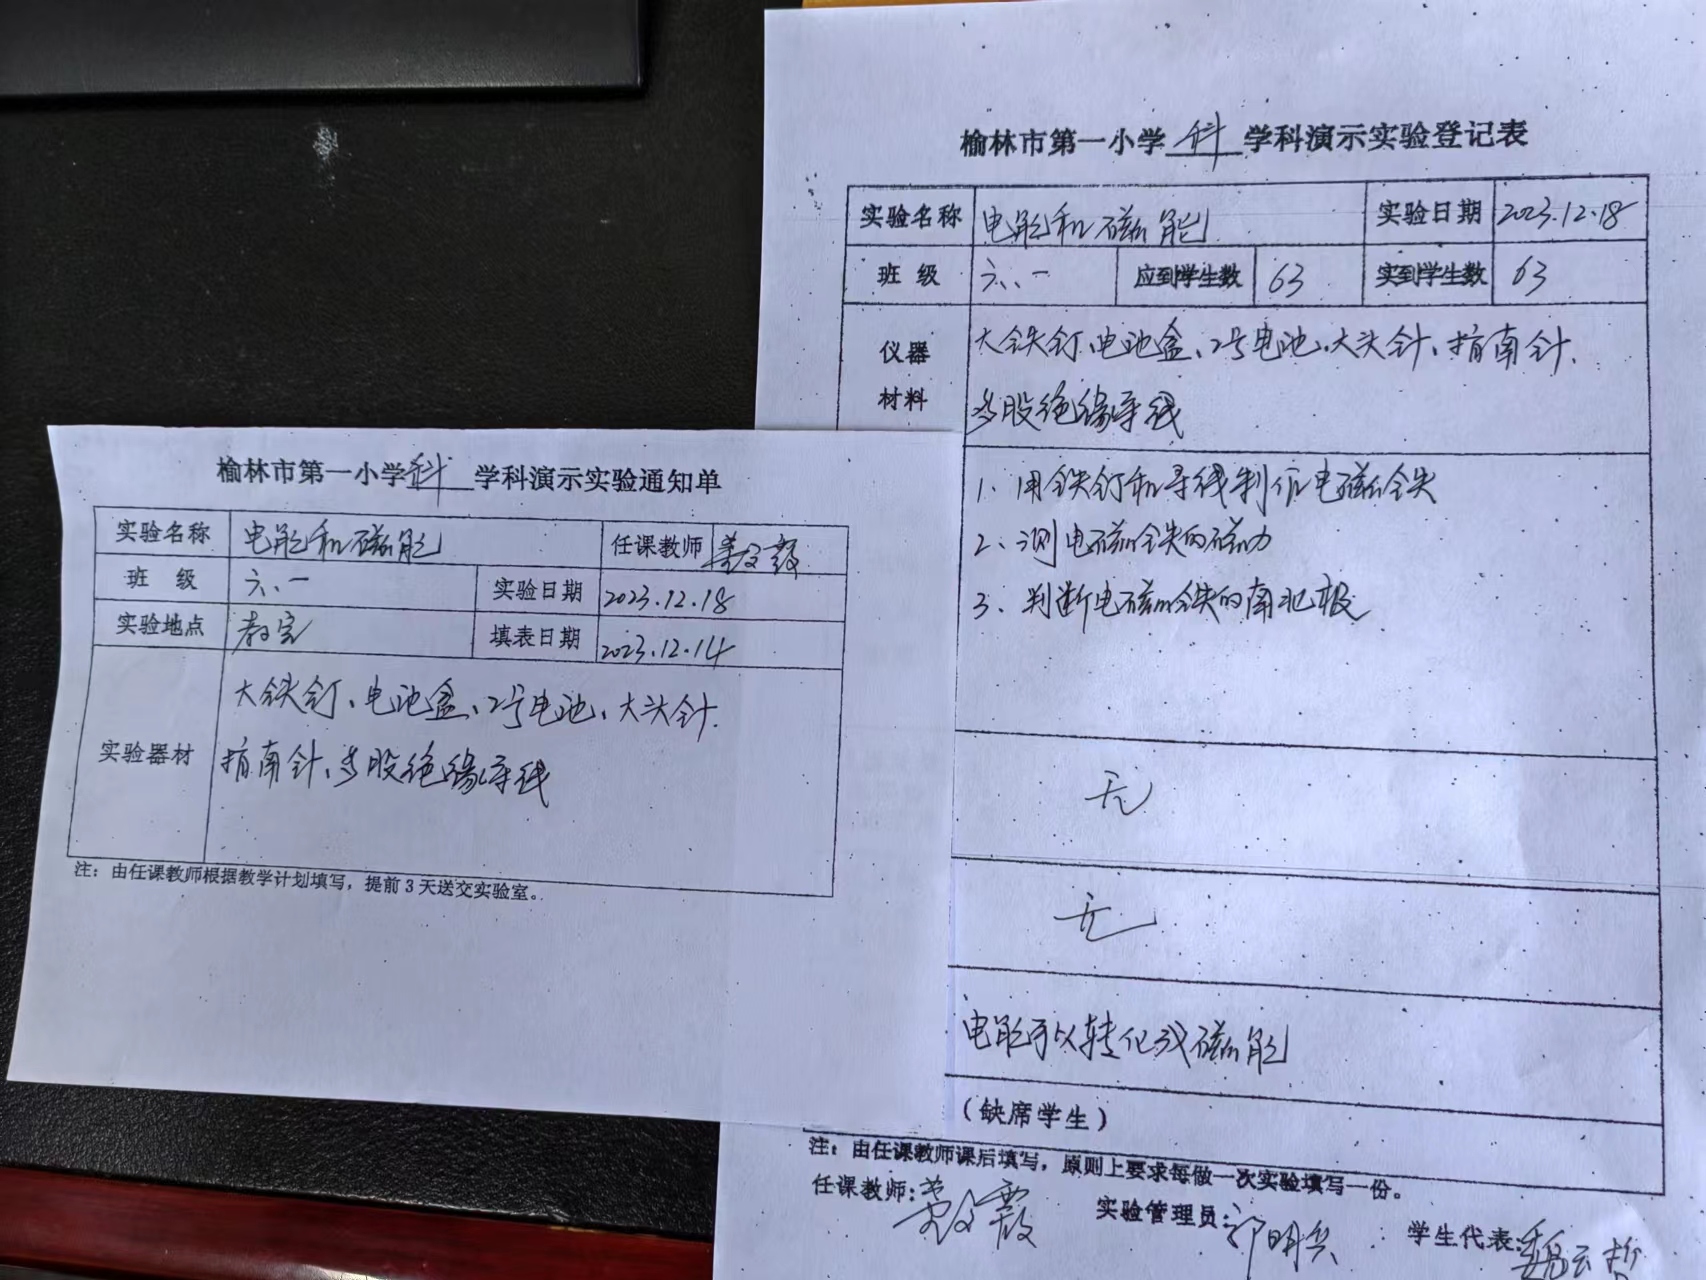 榆林市第一小学科学科演示实验通知单
实验名称 电能和磁能 任课教师
班 级 六、一 实验日期 2023.12.18
实验地点 教室 填表日期 2023.12.14
大铁钉、电池盒、2号电池、大头针、
实验器材
指南针、多股绝缘导线
注：由任课教师根据教学计划填写，提前3天送交实验室。
榆林市第一小学科学科演示实验登记表
实验名称 电能和磁能 实验日期 2023.12.18
班 级 六、一 应到学生数 63 实到学生数 63
仪器 大铁钉、电池盒、2号电池、大头针、指南针、
材料 多股绝缘导线
1、用铁钉和导线制作电磁铁
2、测电磁铁的磁力
3、判断电磁铁的南北极
无
无
电能可以转化成磁能
(缺席学生)
注：由任课教师课后填写，原则上要求每做一次实验填写一份。
任课教师: 实验管理员: 学生代表: